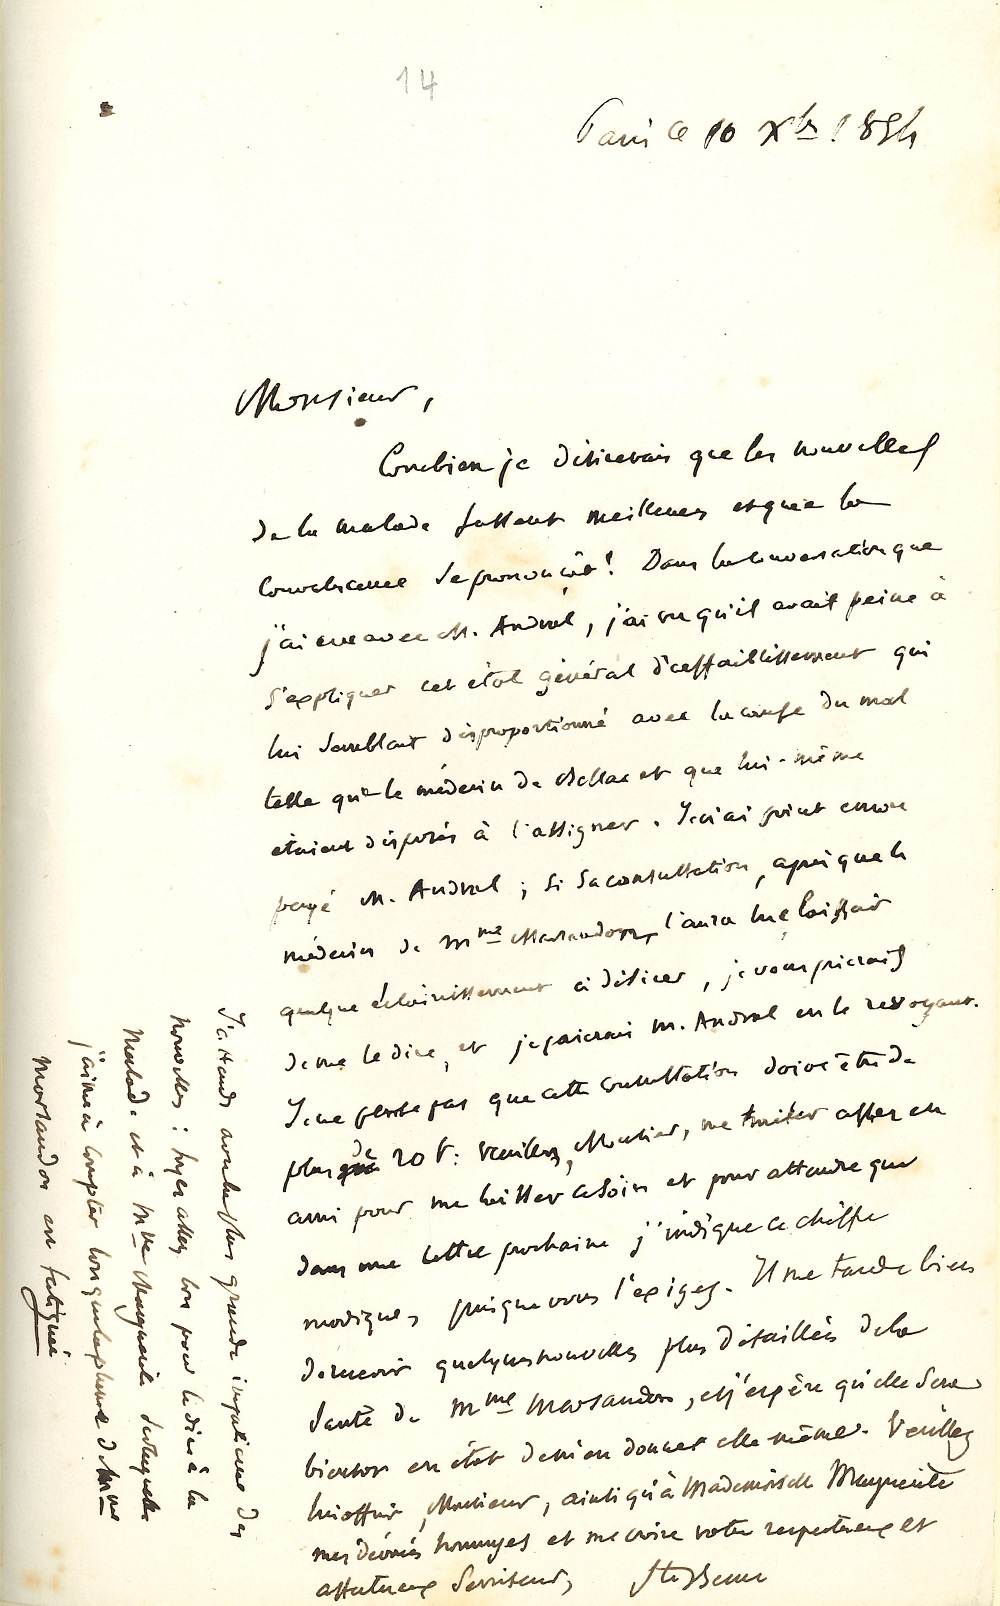 14
Paris ce 10 Xbre 1854
Monsieur,
Combien je désirerais que les nouvelles
de la malade fussent meilleures et que la
convalescence se prononçât! Dans la conversation que
j'ai eue avec M. Andral, j'ai vu qu'il avait peine à
s'expliquer cet état général d'affaiblissement qui
lui semblait disproportionné avec la cause du mal
telle que le médecin de Bellac et que lui-même
étaient disposés à l'assigner. Je n'ai point encore
payé M. Andral; si sa consultation, après que le
médecin de Mme Marsandon l'aura lue laissait
quelque éclaircissement à désirer, je vous prierais
de me le dire, et je paierai M. Andral en le revoyant.
Je ne pense pas que cette consultation doive être de
plus de 20 f: veuillez, Monsieur, me traiter assez en
ami pour me laisser ce soin et pour attendre que
dans une lettre prochaine j'indique ce chiffre
modique, puisque vous l'exigez. Il me tarde bien
de recevoir quelques nouvelles plus détaillées de la
santé de Mme Marsandon, et j'espère qu'elle sera
bientôt en état de m'en donner elle même. Veuillez
lui offrir, Monsieur, ainsi qu'à Mademoiselle Marguerite
mes dévoués hommages et me croire votre respectueux et
affectueux serviteur,
Ste Beuve
J'attends avec la plus grande impatience des
nouvelles: soyez assez bon pour le dire à la
malade et à Mlle Marguerite sur lesquelles
j'aime à compter lorsque la plume de Mme
Marsandon est fatiguée